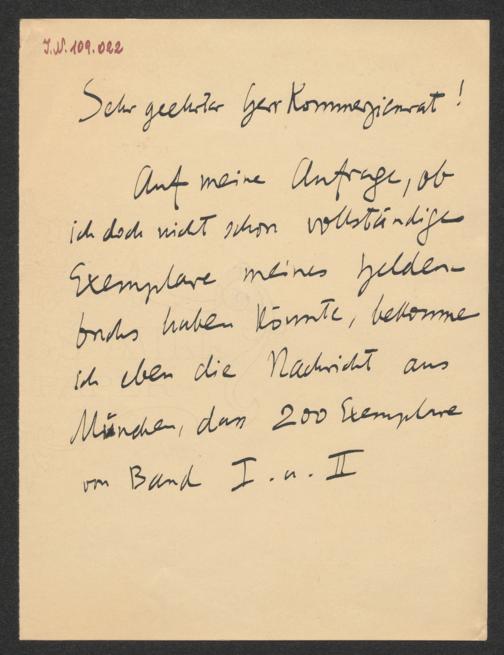 J.N. 109.022
Sehr geehrter Herr Kommerzienrat!
Auf meine Anfrage, ob
ich doch nicht schon vollständige
Exemplare meines Helden-
buchs haben könnte, bekomme
ich eben die Nachricht aus
München, dass 200 Exemplare
von Band I. u. II